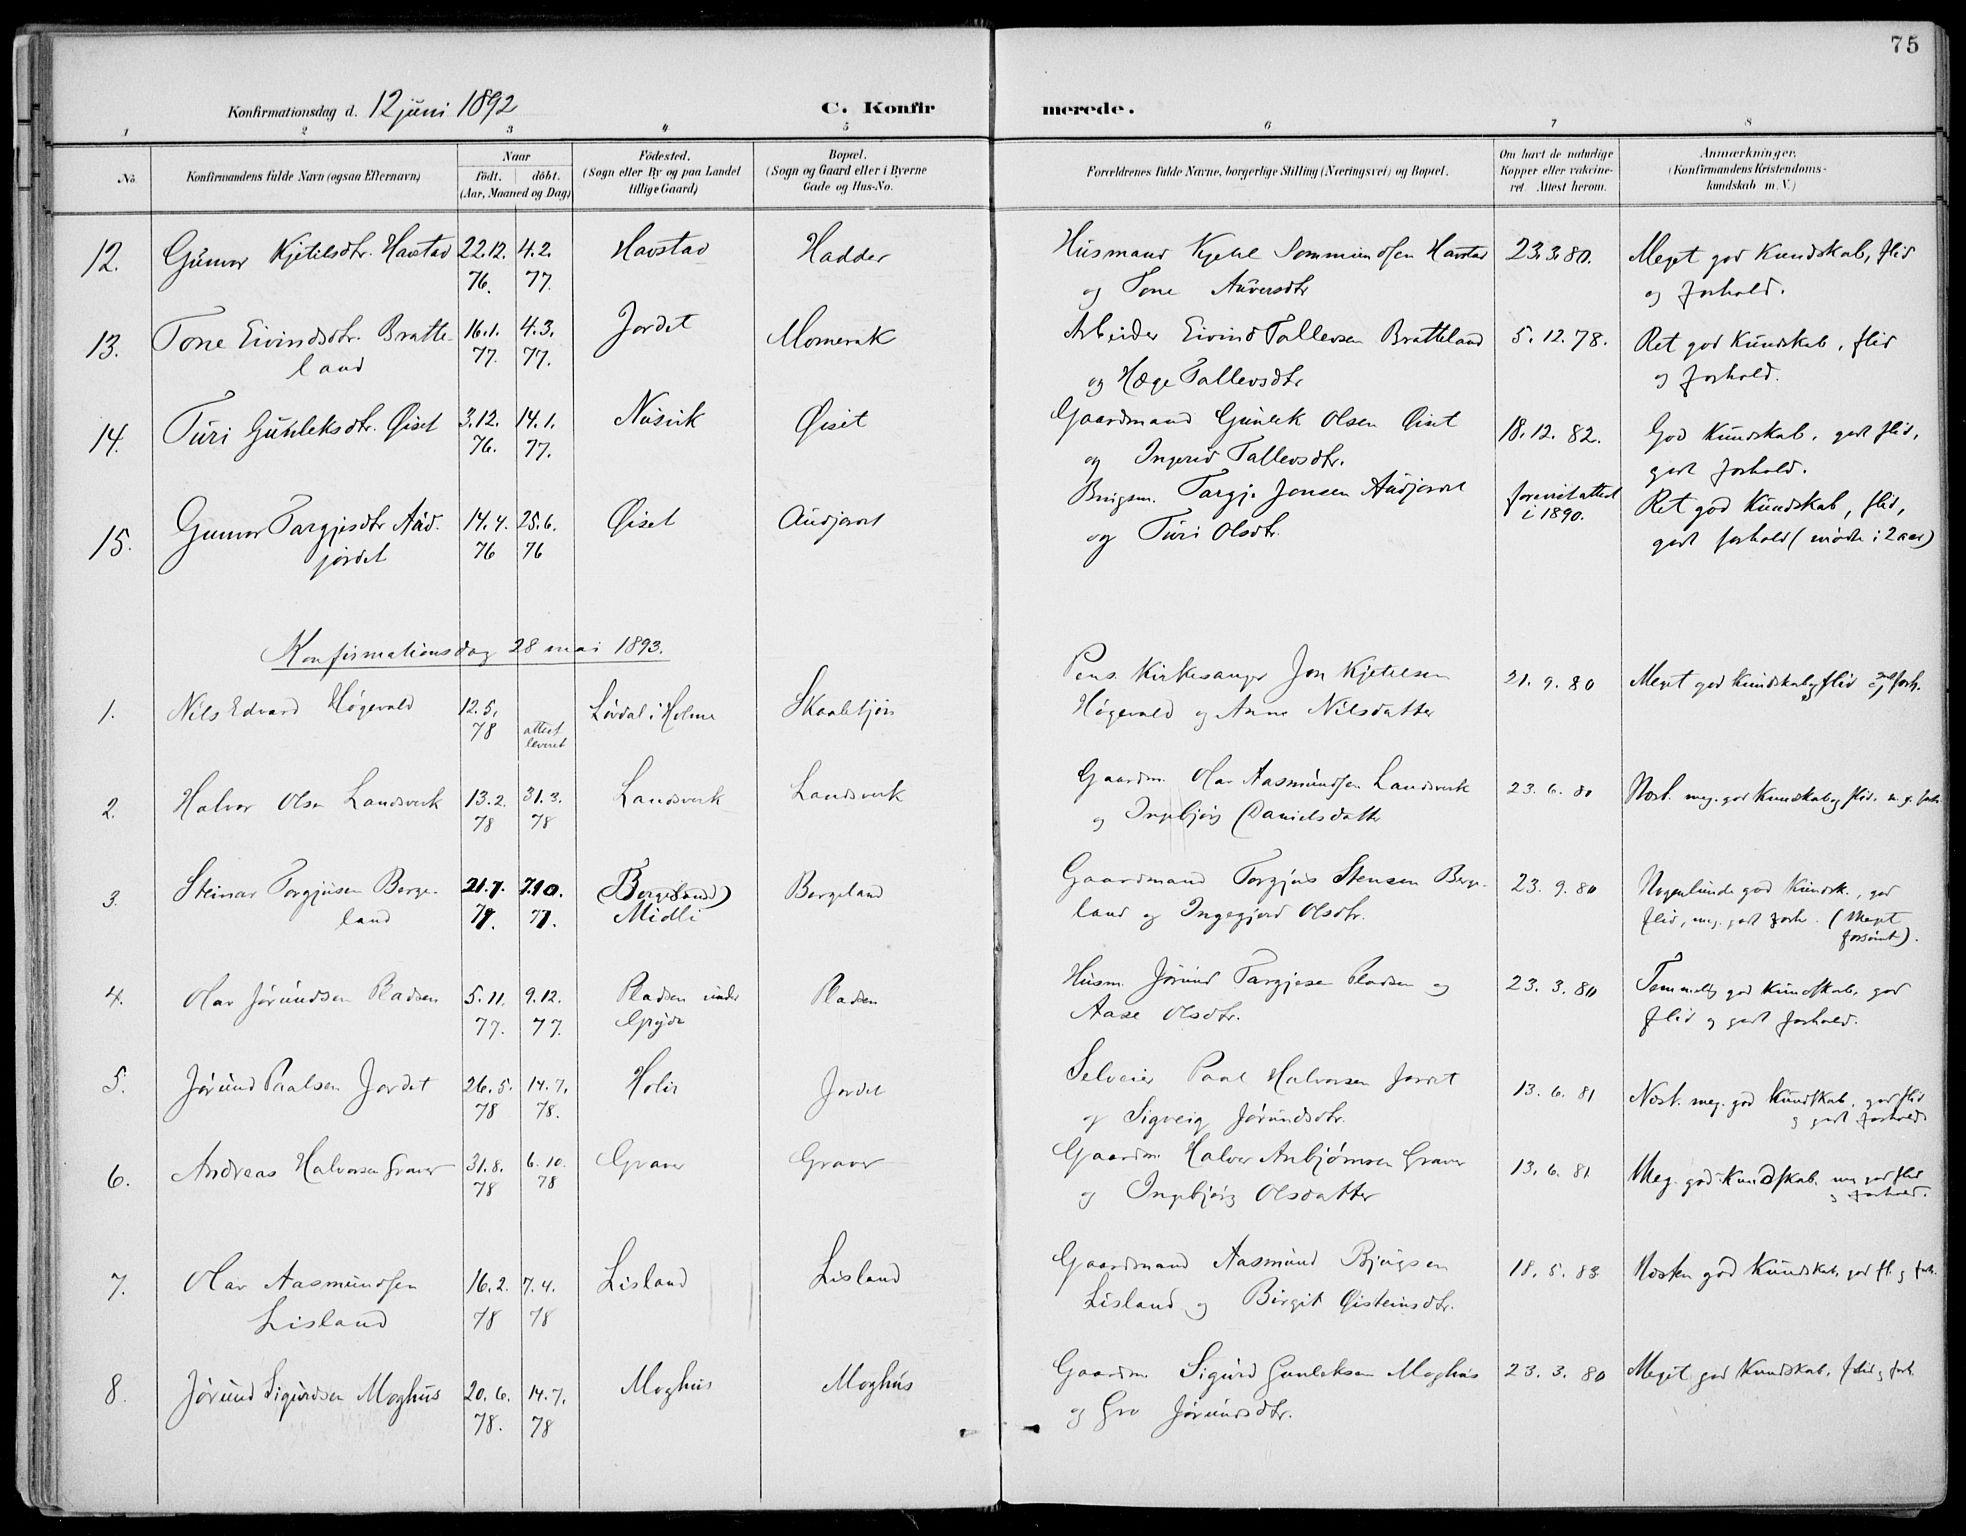 75
Konfirmationsdag d. 12 juni 1892
C. Konfirmerede.
1 2 3 4 5 6 7 8
No. Konfirmandens fulde Navn (ogsaa Efternavn) Naar födt. döbt. (Aar, Maaned og Dag) Födested. (Sogn eller By og paa Landet tillige Gaard) Bopæl. (Sogn og Gaard eller i Byerne Gade og Hus-No. Forældrenes fulde Navne, borgerlige Stilling (Næringsvei) og Bopæl. Om havt de naturlige Kopper eller vakcineret. Attest herom. Anmærkninger. (Konfirmandens Kristendomskundskab m. V.)
12. Gunvor Kjetilsdtr. Havstad 22.12. 4.2. Havstad Hadder Husmand Kjetil Sommundsen Havstad 23.3.80. Meget god Kundskab, flid
76. 77. og Tone Anversdtr og forhold.
13. Tone Eivindsdtr. Bratte- 16.1. 4.3. Jordet Momerak Arbeider Eivind Tallevsen Bratteland 5.12.78. Ret god Kundskab, flid
land 77. 77. og Hæge Tallevsdtr og forhold.
14. Turi Gunleksdtr. Øiset 3.12. 14.1. Nisvik Øiset Gaardmand Gunlek Olsen Øiset 18.12.82. God Kundskab, godt flid,
76. 77. og Ingerid Tallevsdtr. godt forhold.
15. Gunvor Targjesdtr Aud- 14.4. 25.6. Øiset Audjordet Brugsm. Targje Jonsen Audjordet forevist attest i 1890. Ret god Kundskab, flid,
jordet 76 76 og Turi Olsdtr. godt forhold (mødte i 2 aar)
Konfirmationsdag 28 mai 1893.
1. Nils Edvard Høgevald 12.5. attest Løvdal i Holme Skaaletjøn Pens. Kirkesanger Jon Kjetelsen 21.9.80 Meget god Kundskab, flid og forh.
78 leveret Høgevald og Anne Nilsdatter
2. Halvor Olsen Landsverk 13.2. 31.3. Landsverk Landsverk Gaardm. Olav Aasmundsen Landsverk 23.6.80 Næst. meg. god Kundskab og flid. m. g. forh.
78 78 og Ingebjørg Danielsdatter
3. Steinar Torgjusen Berge- 21.7. 7.10. (Bergeland) Bergeland Gaardmand Torgjus Stensen Berge- 23.9.80 Nogenlunde god Kundsk., god
land 77. 77. Midli land og Ingegjerd Olsdtr. flid, meg. godt forh. (Meget
forsømt).
4. Olav Jørundsen Pladsen 5.11. 9.12. Pladsen under Pladsen Husm. Jørund Targjesen Pladsen og 23.3.80 Temmelig god Kundskab, god
77. 77. Aase Olsdtr. flid og godt forhold.
5. Jørund Paalsen Jordet 26.5. 14.7. Jordet Selveier Paal Halvorsen Jordet 13.6.81 Næst. meg. god Kundskab, god flid
78 78. og Sigveig Jørundsdtr. og godt forhold
6. Andreas Halvorsen Graver 31.8. 6.10. Graver Graver Gaardm. Halvor Anbjørnsen Graver 13.6.81. Meg. god Kundskab, meg god flid
78 78 og Ingebjørg Olsdatter og forhold.
7. Olav Aasmundsen 16.2. 7.4. Lisland Lisland Gaardmand Aasmund Bjugsen 18.5.83. Næsten god Kundskab, god fl. og forh.
Lisland 78 78 Lisland og Birgit Øisteinsdtr.
8. Jørund Sigurdsen Moghus 20.6. 14.7. Moghus Moghus Gaardm. Sigurd Gunleksen Moghus 23.3.80 Meget god Kundskab, flid og forh.
78. 78 og Gro Jørundsdtr.